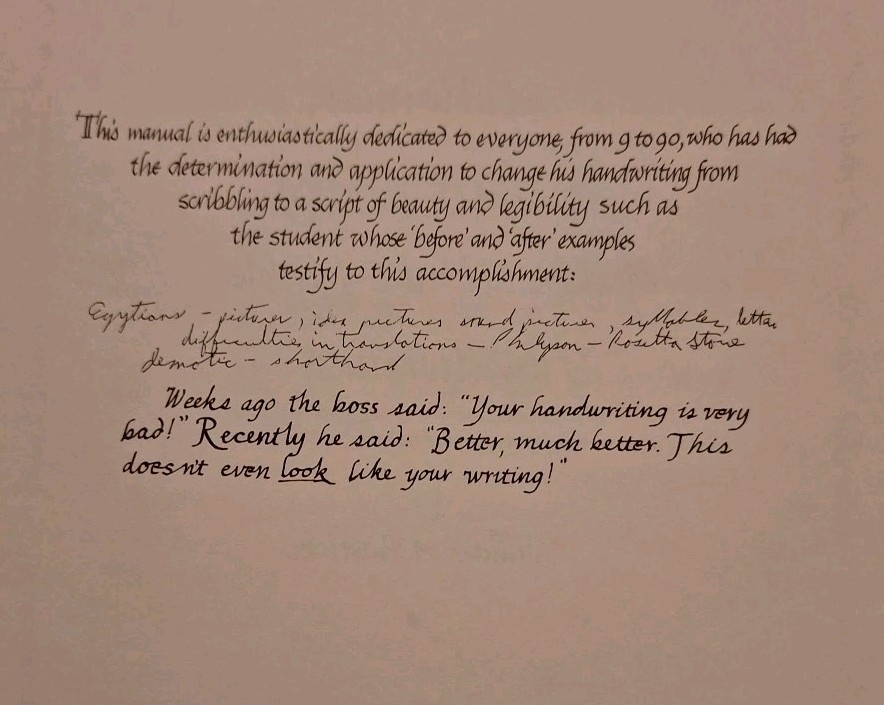 This manual is enthusiastically dedicated to everyone, from 9 to 90, who has had
the determination and application to change his handwriting from
scribbling to a script of beauty and legibility such as
the student whose 'before' and 'after' examples
testify to this accomplishment:
Egytians – pictures, idea pictures sound pictures, syllables, letters
difficulties in translations – – Rosetta Stone
demotic – shorthand
Weeks ago the boss said: "Your handwriting is very
bad!" Recently he said: "Better, much better. This
doesn't even look like your writing!"